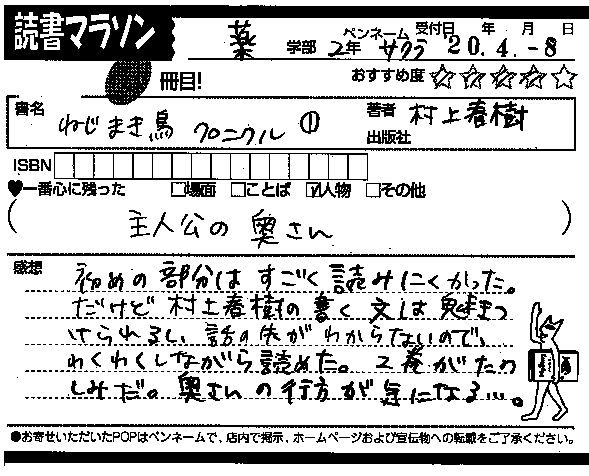 読書マラソン
薬 学部 2年 ペンネーム サクラ 受付日 年 月 日 20.4.-8
冊目! おすすめ度 ☆☆☆☆☆
書名 ねじまき鳥 クロニクル ① 著者 村上春樹
出版社
ISBN
♥一番心に残った □場面 □ことば ☑人物 □その他
( 主人公の奥さん )
感想 初めの部分はすごく読みにくかった。
だけど村上春樹の書く文は魅きつ
けられるし、話の先がわからないので、
わくわくしながら読めた。2巻がたの
しみだ。奥さんの行方が気になる…。
●お寄せいただいたPOPはペンネームで、店内で掲示、ホームページおよび宣伝物への転載をご了承ください。